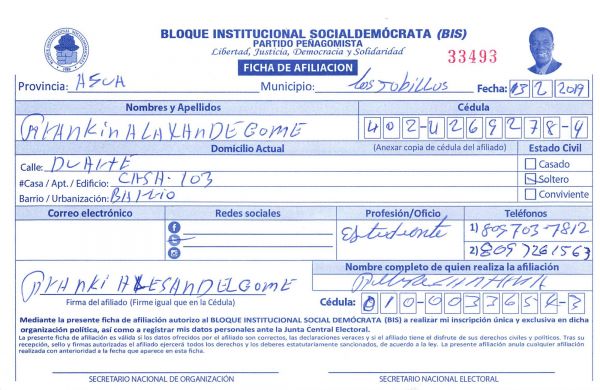 BLOQUE INSTITUCIONAL SOCIALDEMÓCRATA (BIS)
PARTIDO PEÑAGOMISTA
Libertad, Justicia, Democracia y Solidaridad
33493
FICHA DE AFILIACION
Provincia: ASUA Municipio: Los Jobillos Fecha: 13 2 2019
Nombres y Apellidos Cédula
FrankinALAXANDEGOME 402-4269278-4
Domicilio Actual (Anexar copia de cédula del afiliado) Estado Civil
Calle: DuArtE Casado
#Casa / Apt. / Edificio: CASA-103 Soltero
Barrio / Urbanización: BArrio Conviviente
Correo electrónico Redes sociales Profesión/Oficio Teléfonos
Estudiente 1) 809703-7812
2) 8097261563
FrANKi ALESANDELGOME Nombre completo de quien realiza la afiliación
Firma del afiliado (Firme igual que en la Cédula) Cédula: 010-0033654-3
Mediante la presente ficha de afiliación autorizo al BLOQUE INSTITUCIONAL SOCIAL DEMÓCRATA (BIS) a realizar mi inscripción única y exclusiva en dicha
organización política, así como a registrar mis datos personales ante la Junta Central Electoral.
La presente ficha de afiliación es válida si los datos ofrecidos por el afiliado son correctos, las declaraciones veraces y si el afiliado tiene el disfrute de sus derechos civiles y políticos. Tras su
recepción, sello y firmas autorizadas el afiliado ejercerá todos los derechos y los deberes estatutariamente sancionados, de acuerdo a la ley. La presente afiliación anula cualquier afiliación
realizada con anterioridad a la fecha que aparece en esta ficha.
SECRETARIO NACIONAL DE ORGANIZACIÓN SECRETARIO NACIONAL ELECTORAL